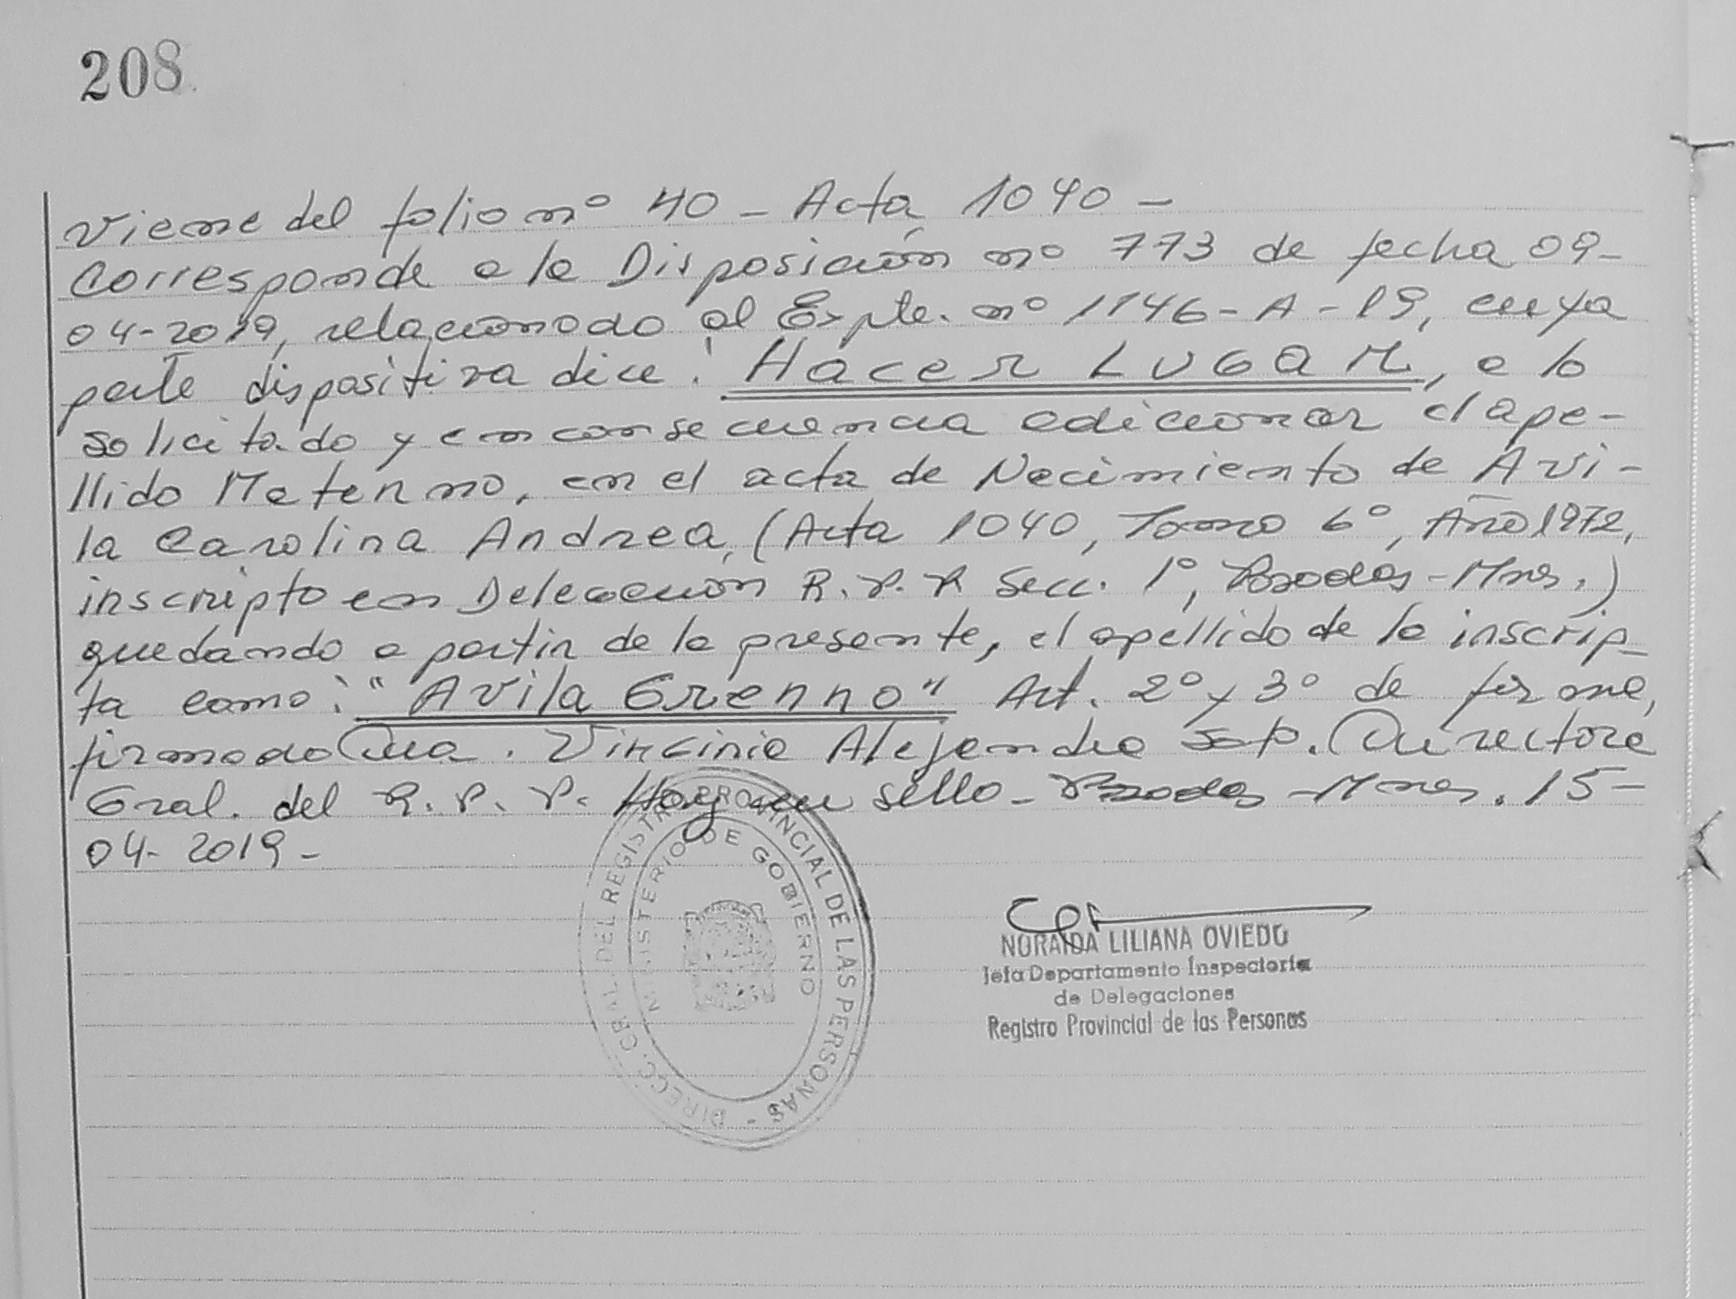 208
Viene del folio nº 40 - Acta 1040 -
Corresponde a la Disposición nº 773 de fecha 09-
04-2019, relacionado al Expte. nº 1146-A-19, cuya
parte dispositiva dice: Hacer LUGAR, a lo
solicitado y en consecuencia adicionar el ape-
llido Materno, en el acta de Nacimiento de Avi-
la Carolina Andrea, (Acta 1040, Tomo 6º, Año 1972,
inscripto en Delegación R.P.P Secc. 1º, Posadas-Mnes.)
quedando a partir de la presente, el apellido de la inscrip-
ta como: "Avila Grenno" Art. 2º y 3º de forme,
firmado Dra. Virginia Alejandra Directora
Gral. del R.P.P. Hay un sello - Posadas - Mnes. 15-
04-2019-
DIRECC. GRAL. DEL REGISTRO PROVINCIAL DE LAS PERSONAS -
MINISTERIO DE GOBIERNO
NORAIDA LILIANA OVIEDO
Jefa Departamento Inspectoria
de Delegaciones
Registro Provincial de las Personas